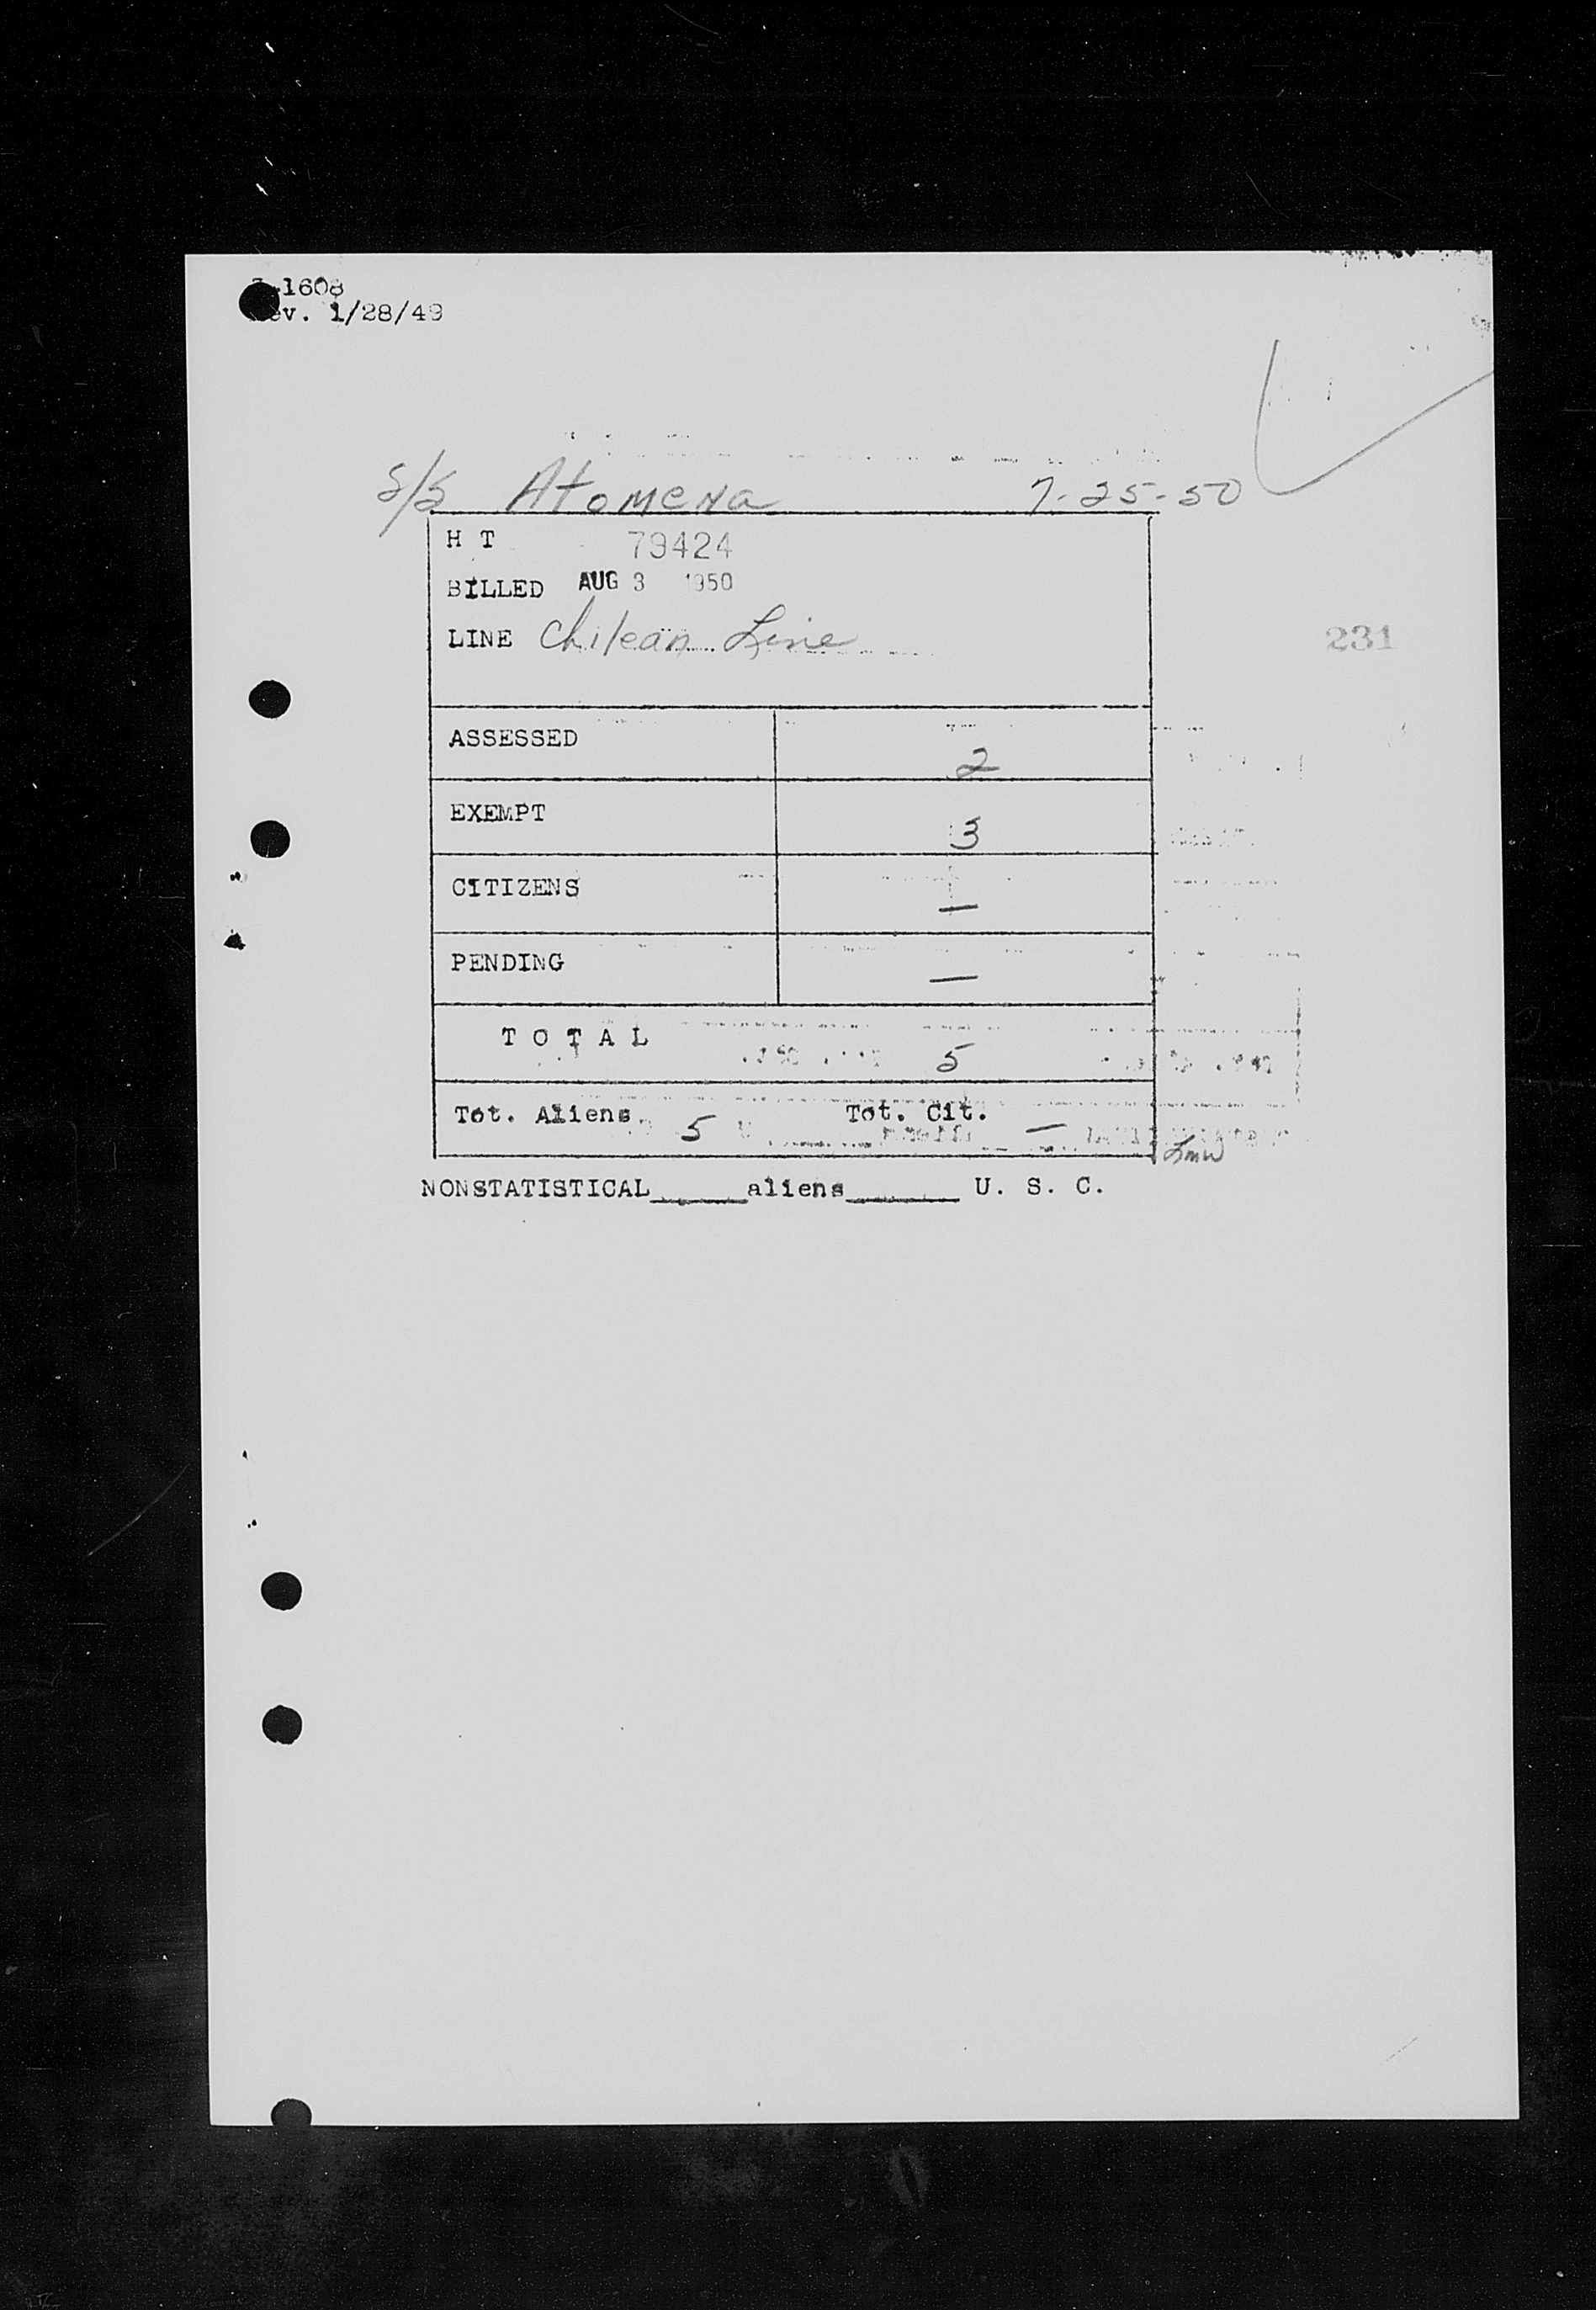 -1608
ev. 1/28/49
S/S Atomena 7-25-50
H T 79424
BILLED AUG 3 1950
LINE Chilean Line
231
ASSESSED 2
EXEMPT 3
CITIZENS —
PENDING —
T O T A L 5
Tot. Aliens 5 Tot. Cit. —
NONSTATISTICAL_____aliens______ U. S. C.